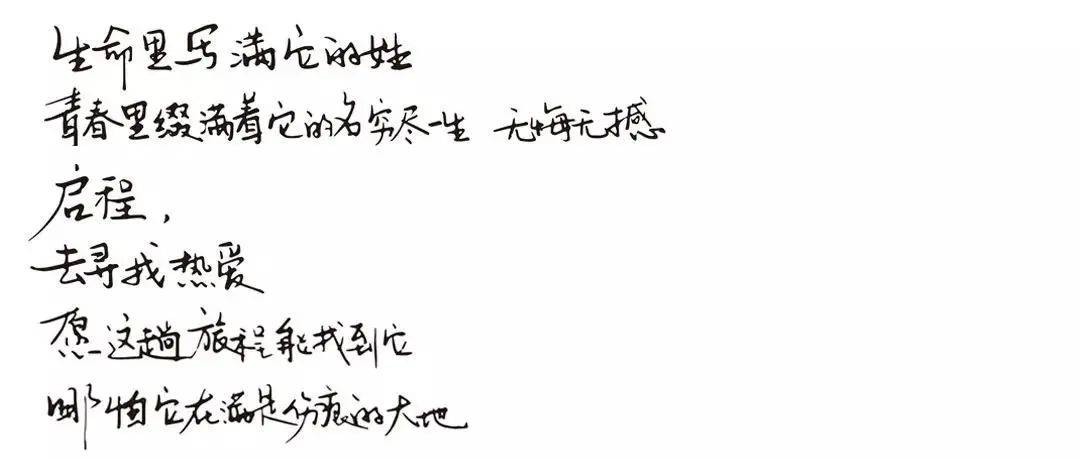 生命里写满它的姓
青春里缀满着它的名穷尽一生 无悔无撼
启程，
去寻找热爱
愿这趟旅程能找到它
哪怕它在满是伤痕的大地